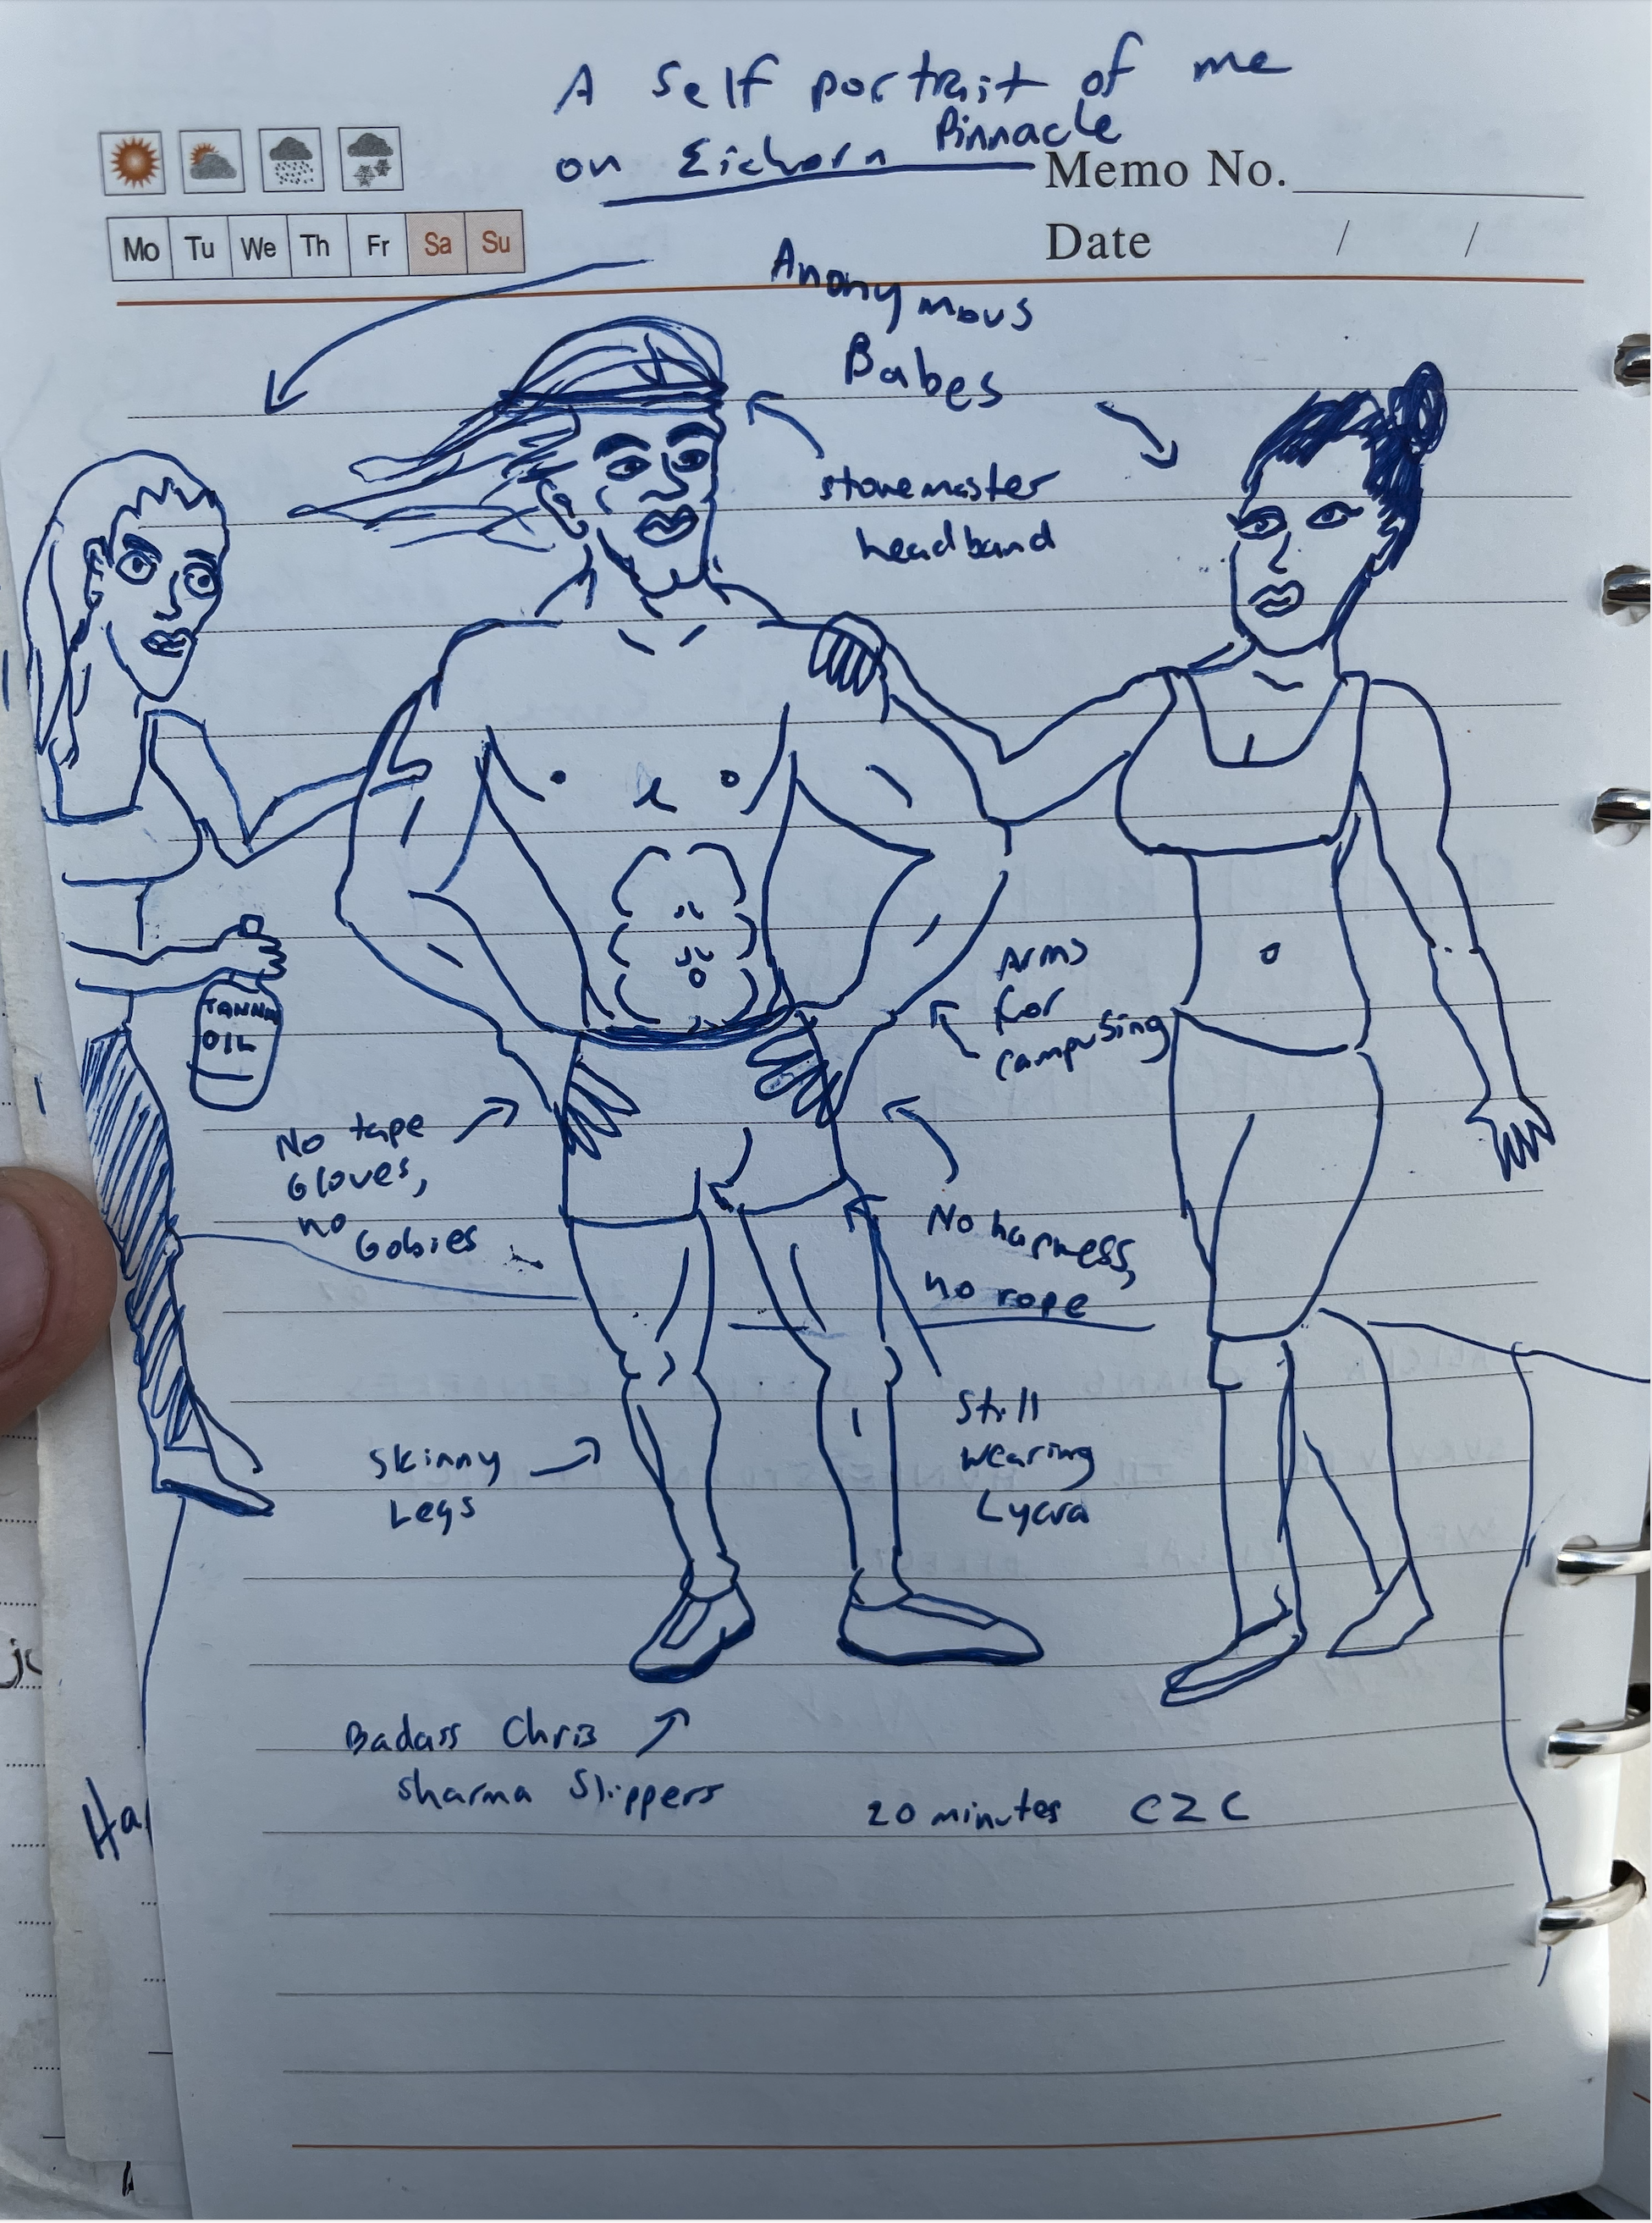 A Self portrait of me
on Eichorn Pinnacle
Memo No.
Mo Tu We Th Fr Sa Su
Date / /
Anonymous
Babes
stonemaster
headband
TANNN
OIL
Arms
for
campusing
No tape
Gloves,
no Gobies
No harness,
no rope
Skinny
Legs
Still
wearing
Lycra
Badass Chris
Sharma Slippers
20 minutes C2C
Ha